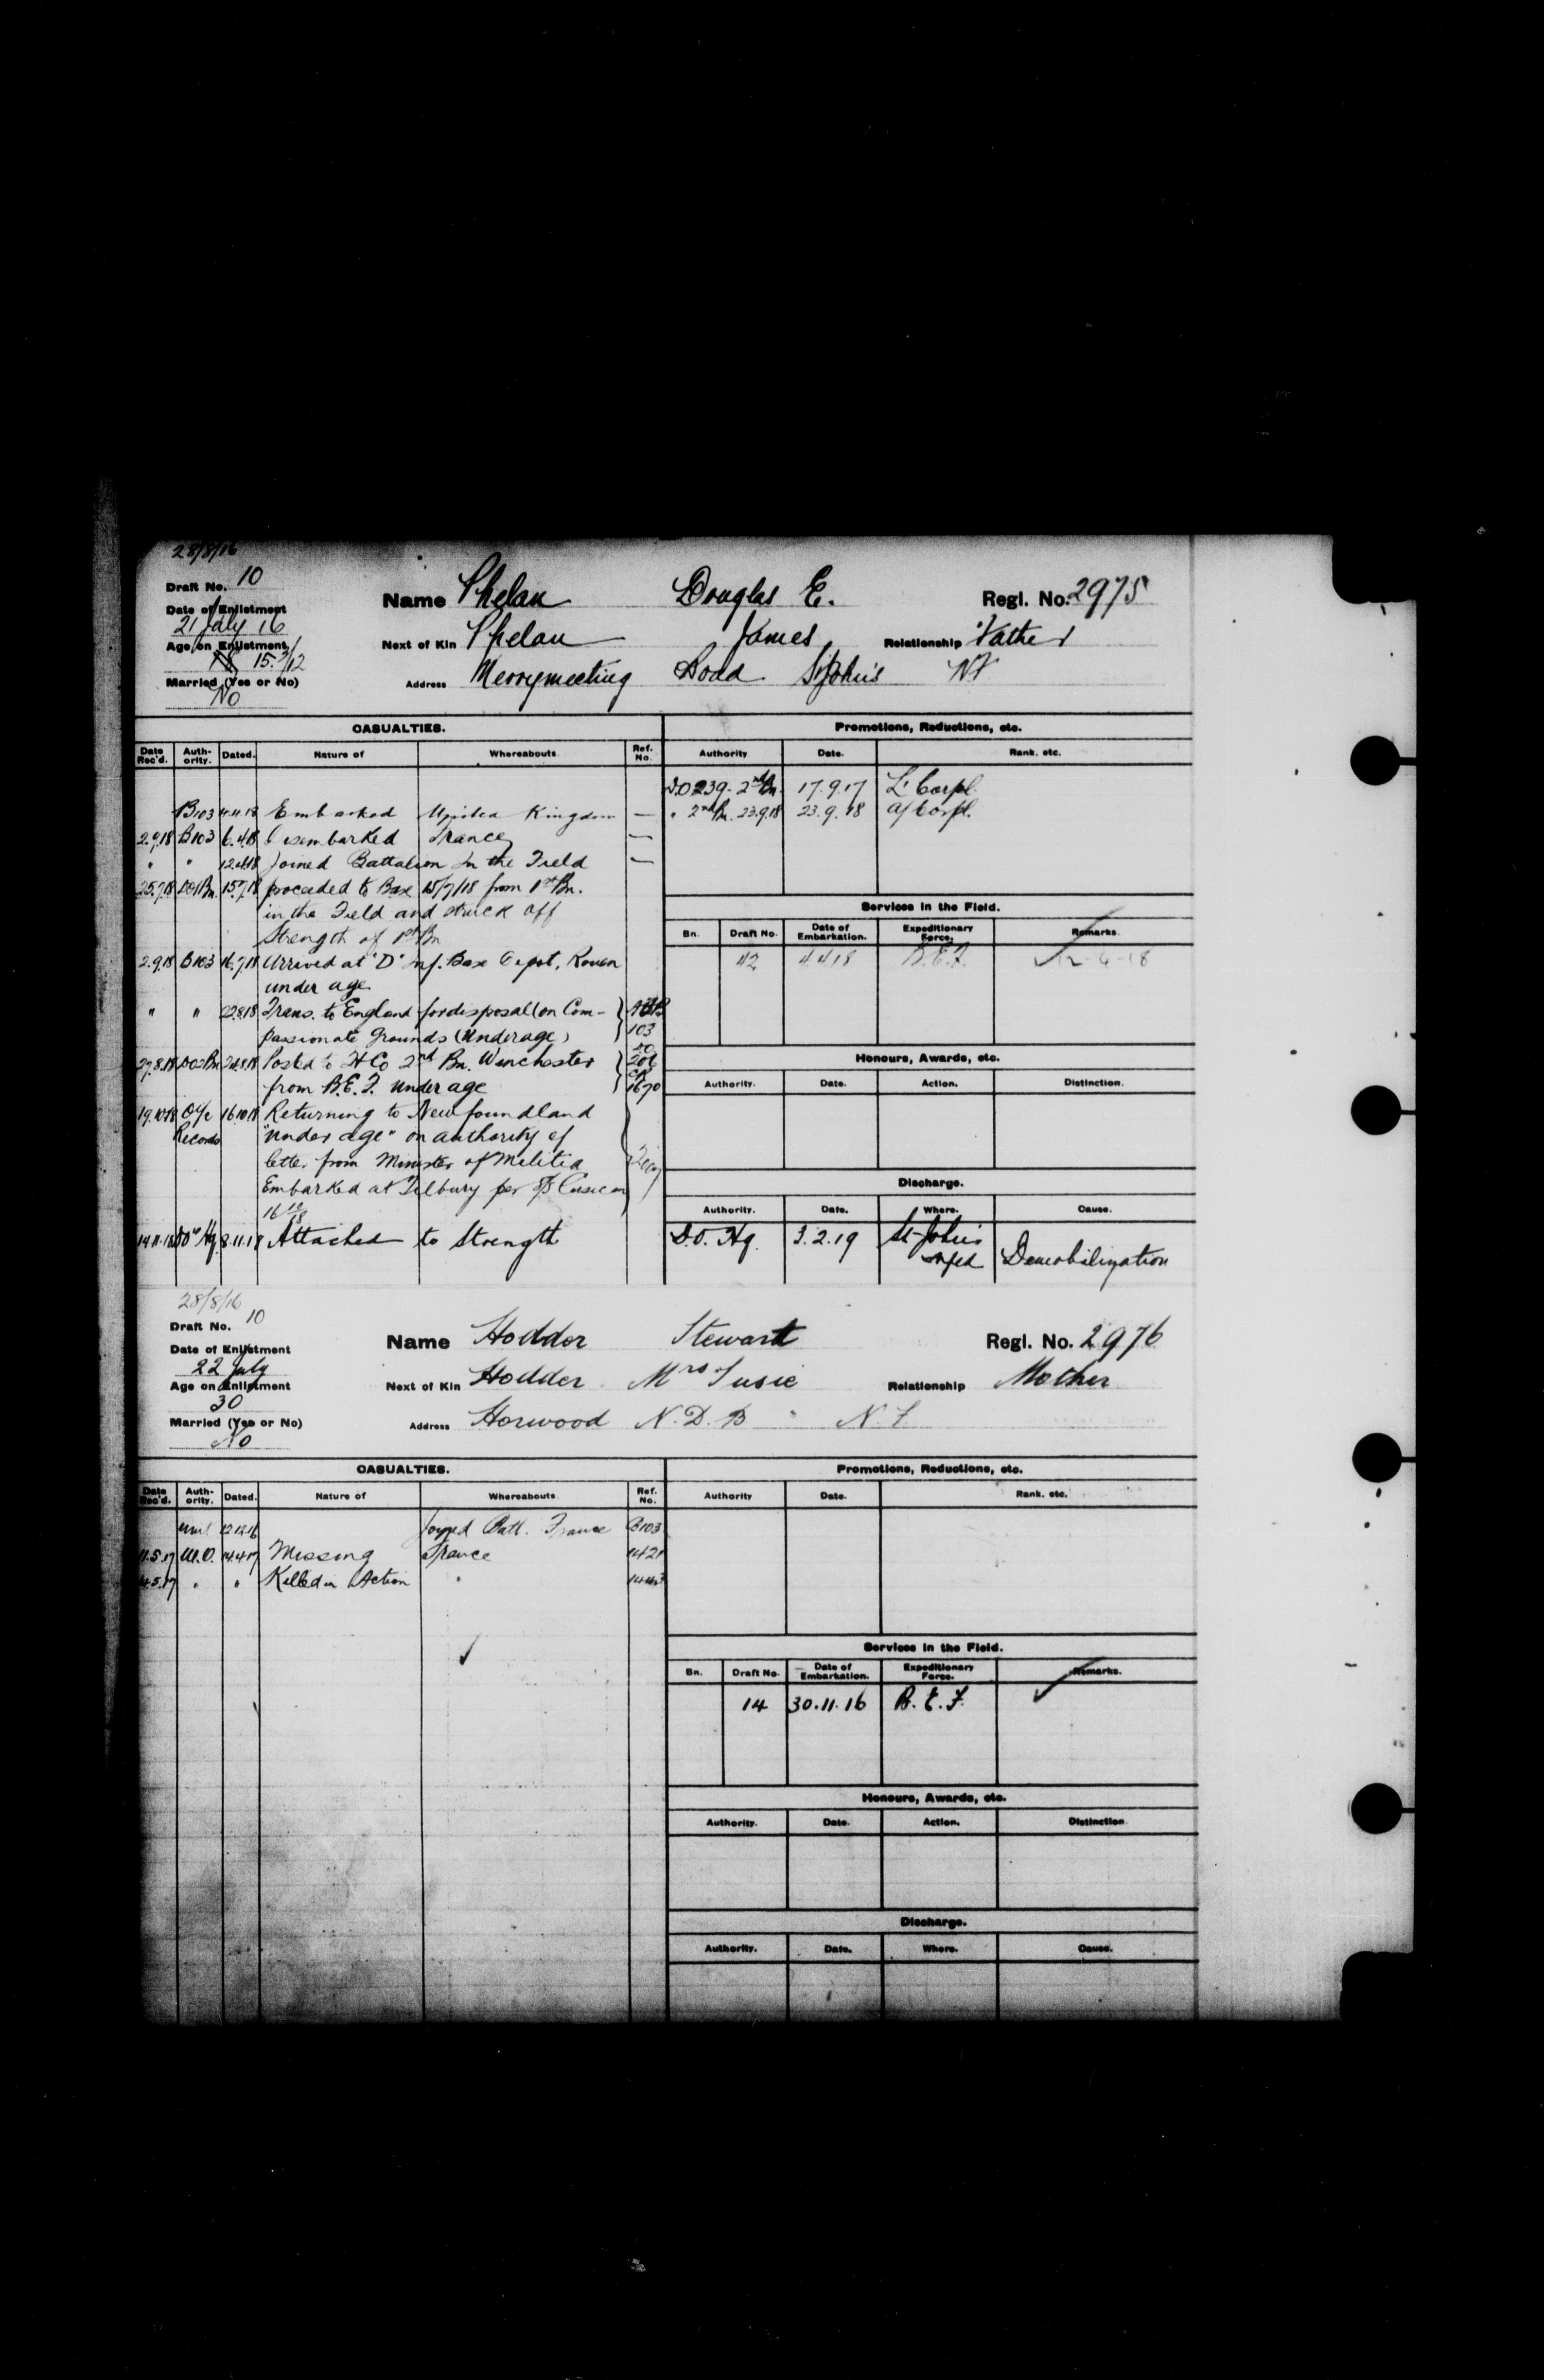 28/8/16
Draft No. 10
Name Phelan Douglas E. Regl. No. 2975
Date of Enlistment
21 July 16
Next of Kin Phelan James Relationship Father
Age on Enlistment
18 15 3/12
Address Merrymeeting Road St John's NF
Married (Yes or No)
No
CASUALTIES. Promotions, Reductions, etc.
Date Rec'd. Authority. Dated. Nature of Whereabouts Ref. No. Authority Date. Rank. etc.
D.O 239. 2nd Bn. 17.9.17 L/Corpl.
B103 4.4.18 Embarked United Kingdom — " 2nd Bn. 23.9.18 23.9.18 a/Corpl.
2.9.18 B103 6.4.18 Disembarked France —
" " 12.4.18 Joined Battalion In the Field —
25.7.18 DO1Bn. 15.7.18 proceeded to Base 15/7/18 from 1st Bn.
in the Field and struck off
Strength of 1st Bn
Services in the Field.
Bn. Draft No. Date of Embarkation. Expeditionary Force. Remarks.
42 4.4.18 B.E.F.
2.9.18 B103 16.7.18 Arrived at "D" Inf. Base Depot, Rouen
under age
" " 22.8.18 Trans. to England for disposal (on Com-
passionate Grounds (Underage) 103
27.8.18 DO2Bn 24.8.18 Posted to H Co 2nd Bn. Winchester
from B.E.F. under age 1670
Honours, Awards, etc.
Authority. Date. Action. Distinction.
19.10.18 O i/c Records 16.10.18 Returning to Newfoundland
"under age" on authority of
letter from Minister of Militia
Embarked at Tilbury per S/S
16 10/18
Discharge.
Authority. Date. Where. Cause.
14.11.18 DO Hq 8.11.18 Attached to Strength D.O. Hq. 3.2.19 St-John's Nfld Demobilization
28/8/16
Draft No. 10
Name Hodder Stewart Regl. No. 2976
Date of Enlistment
22 July
Next of Kin Hodder Mrs Susie Relationship Mother
Age on Enlistment
30
Address Horwood N.D.B N.F
Married (Yes or No)
No
CASUALTIES. Promotions, Reductions, etc.
Date Rec'd. Authority. Dated. Nature of Whereabouts Ref. No. Authority Date. Rank. etc.
Unit 12.12.16 Joined Batt. France B103
11.5.17 W.O. 14.4.17 Missing France 1421
14.5.17 " " Killed in Action "
Services in the Field.
Bn. Draft No. Date of Embarkation. Expeditionary Force. Remarks.
14 30.11.16 B.E.F.
Honours, Awards, etc.
Authority. Date. Action. Distinction
Discharge.
Authority. Date. Where. Cause.